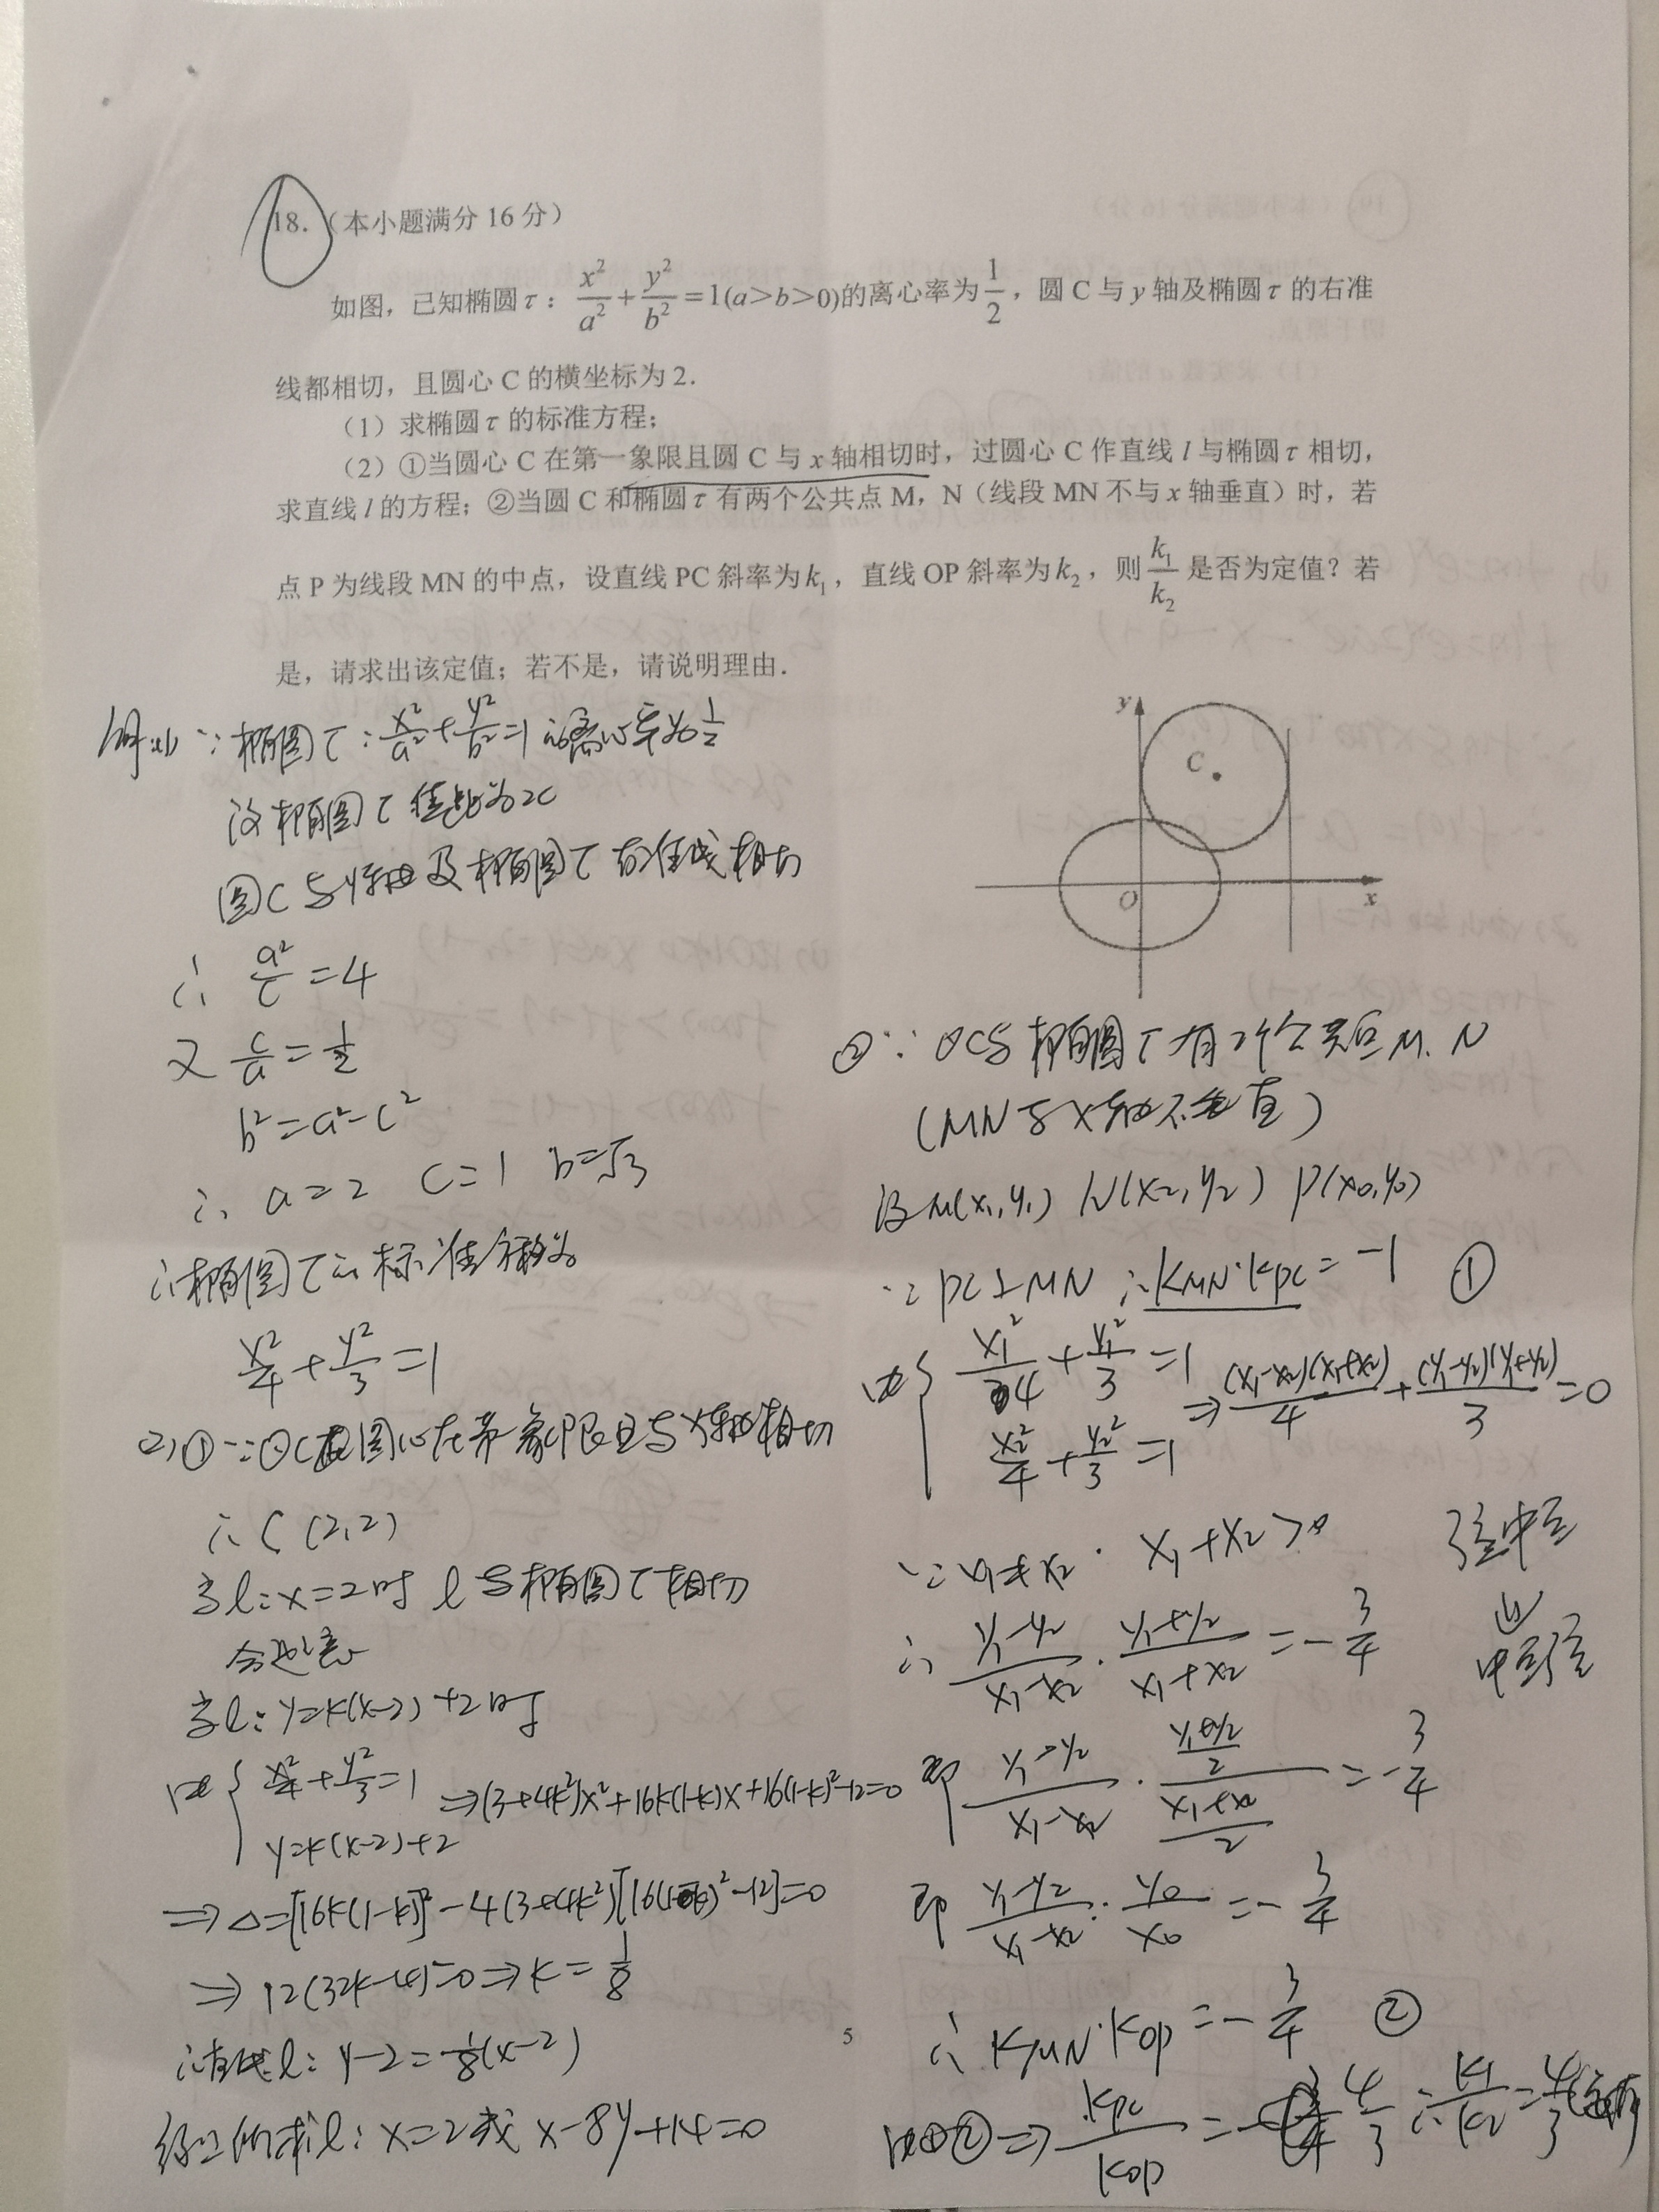 18.（本小题满分 16 分）
如图，已知椭圆 τ：x²/a² + y²/b² =1(a>b>0)的离心率为 1/2，圆 C 与 y 轴及椭圆 τ 的右准
线都相切，且圆心 C 的横坐标为 2.
（1）求椭圆 τ 的标准方程；
（2）①当圆心 C 在第一象限且圆 C 与 x 轴相切时，过圆心 C 作直线 l 与椭圆 τ 相切，
求直线 l 的方程；②当圆 C 和椭圆 τ 有两个公共点 M，N（线段 MN 不与 x 轴垂直）时，若
点 P 为线段 MN 的中点，设直线 PC 斜率为 k₁，直线 OP 斜率为 k₂，则 k₁/k₂ 是否为定值？若
是，请求出该定值；若不是，请说明理由.
y
C
O
x
解:(1) ∵椭圆τ: x²/a² + y²/b² =1 的离心率为 1/2
设椭圆τ焦距为2c
圆C与y轴及椭圆τ右准线相切
∴ a²/c = 4
又 c/a = 1/2
b²=a²-c²
∴ a=2 c=1 b=√3
∴椭圆τ的标准方程为
x²/4 + y²/3 =1
(2)①∵⊙C圆心在第一象限且与x轴相切
∴C(2,2)
当l: x=2时 l与椭圆τ相切
合题意
当l: y=k(x-2)+2时
由{ x²/4 + y²/3 =1
y=k(x-2)+2
⇒(3+4k²)x²+16k(1-k)x+16(1-k)²-12=0
⇒△=[16k(1-k)]²-4(3+4k²)[16(1-k)²-12]=0
⇒ 12(32k-4)=0⇒k=1/8
∴直线l: y-2=1/8(x-2)
综上所求l: x=2或 x-8y+14=0
②∵⊙C与椭圆τ有2个公共点M、N
(MN与x轴不垂直)
设M(x₁,y₁) N(x₂,y₂) P(x₀,y₀)
∵PC⊥MN ∴kMN·kPC=-1 ①
由{ x₁²/4 + y₁²/3 =1
x₂²/4 + y₂²/3 =1
⇒ (x₁-x₂)(x₁+x₂)/4 + (y₁-y₂)(y₁+y₂)/3 =0
∵x₁≠x₂. x₁+x₂>0
弦中点
⇓
中点弦
∴ (y₁-y₂)/(x₁-x₂) · (y₁+y₂)/(x₁+x₂) = -3/4
即 (y₁-y₂)/(x₁-x₂) · ((y₁+y₂)/2)/((x₁+x₂)/2) = -3/4
即 (y₁-y₂)/(x₁-x₂) · y₀/x₀ = -3/4
∴ kMN·kOP = -3/4 ②
由①②⇒ kPC/kOP = 4/3 ∴ k₁/k₂ = 4/3
5